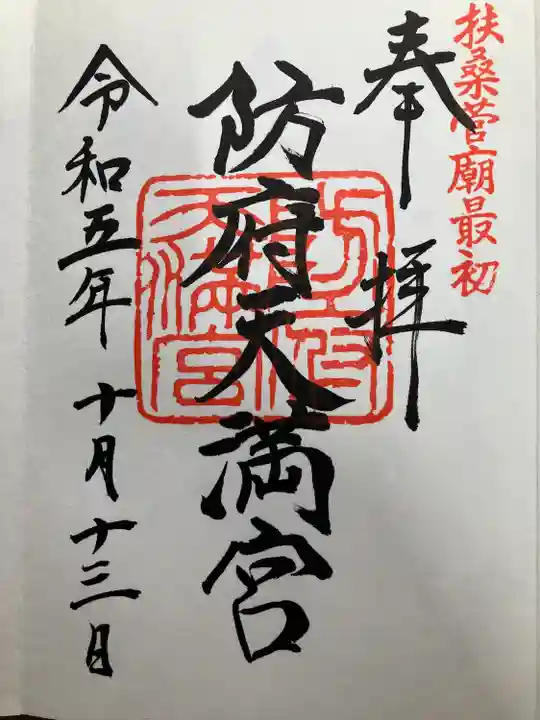 扶桑菅廟最初
奉拝
防府天満宮
令和五年十月十三日
防府天満宮